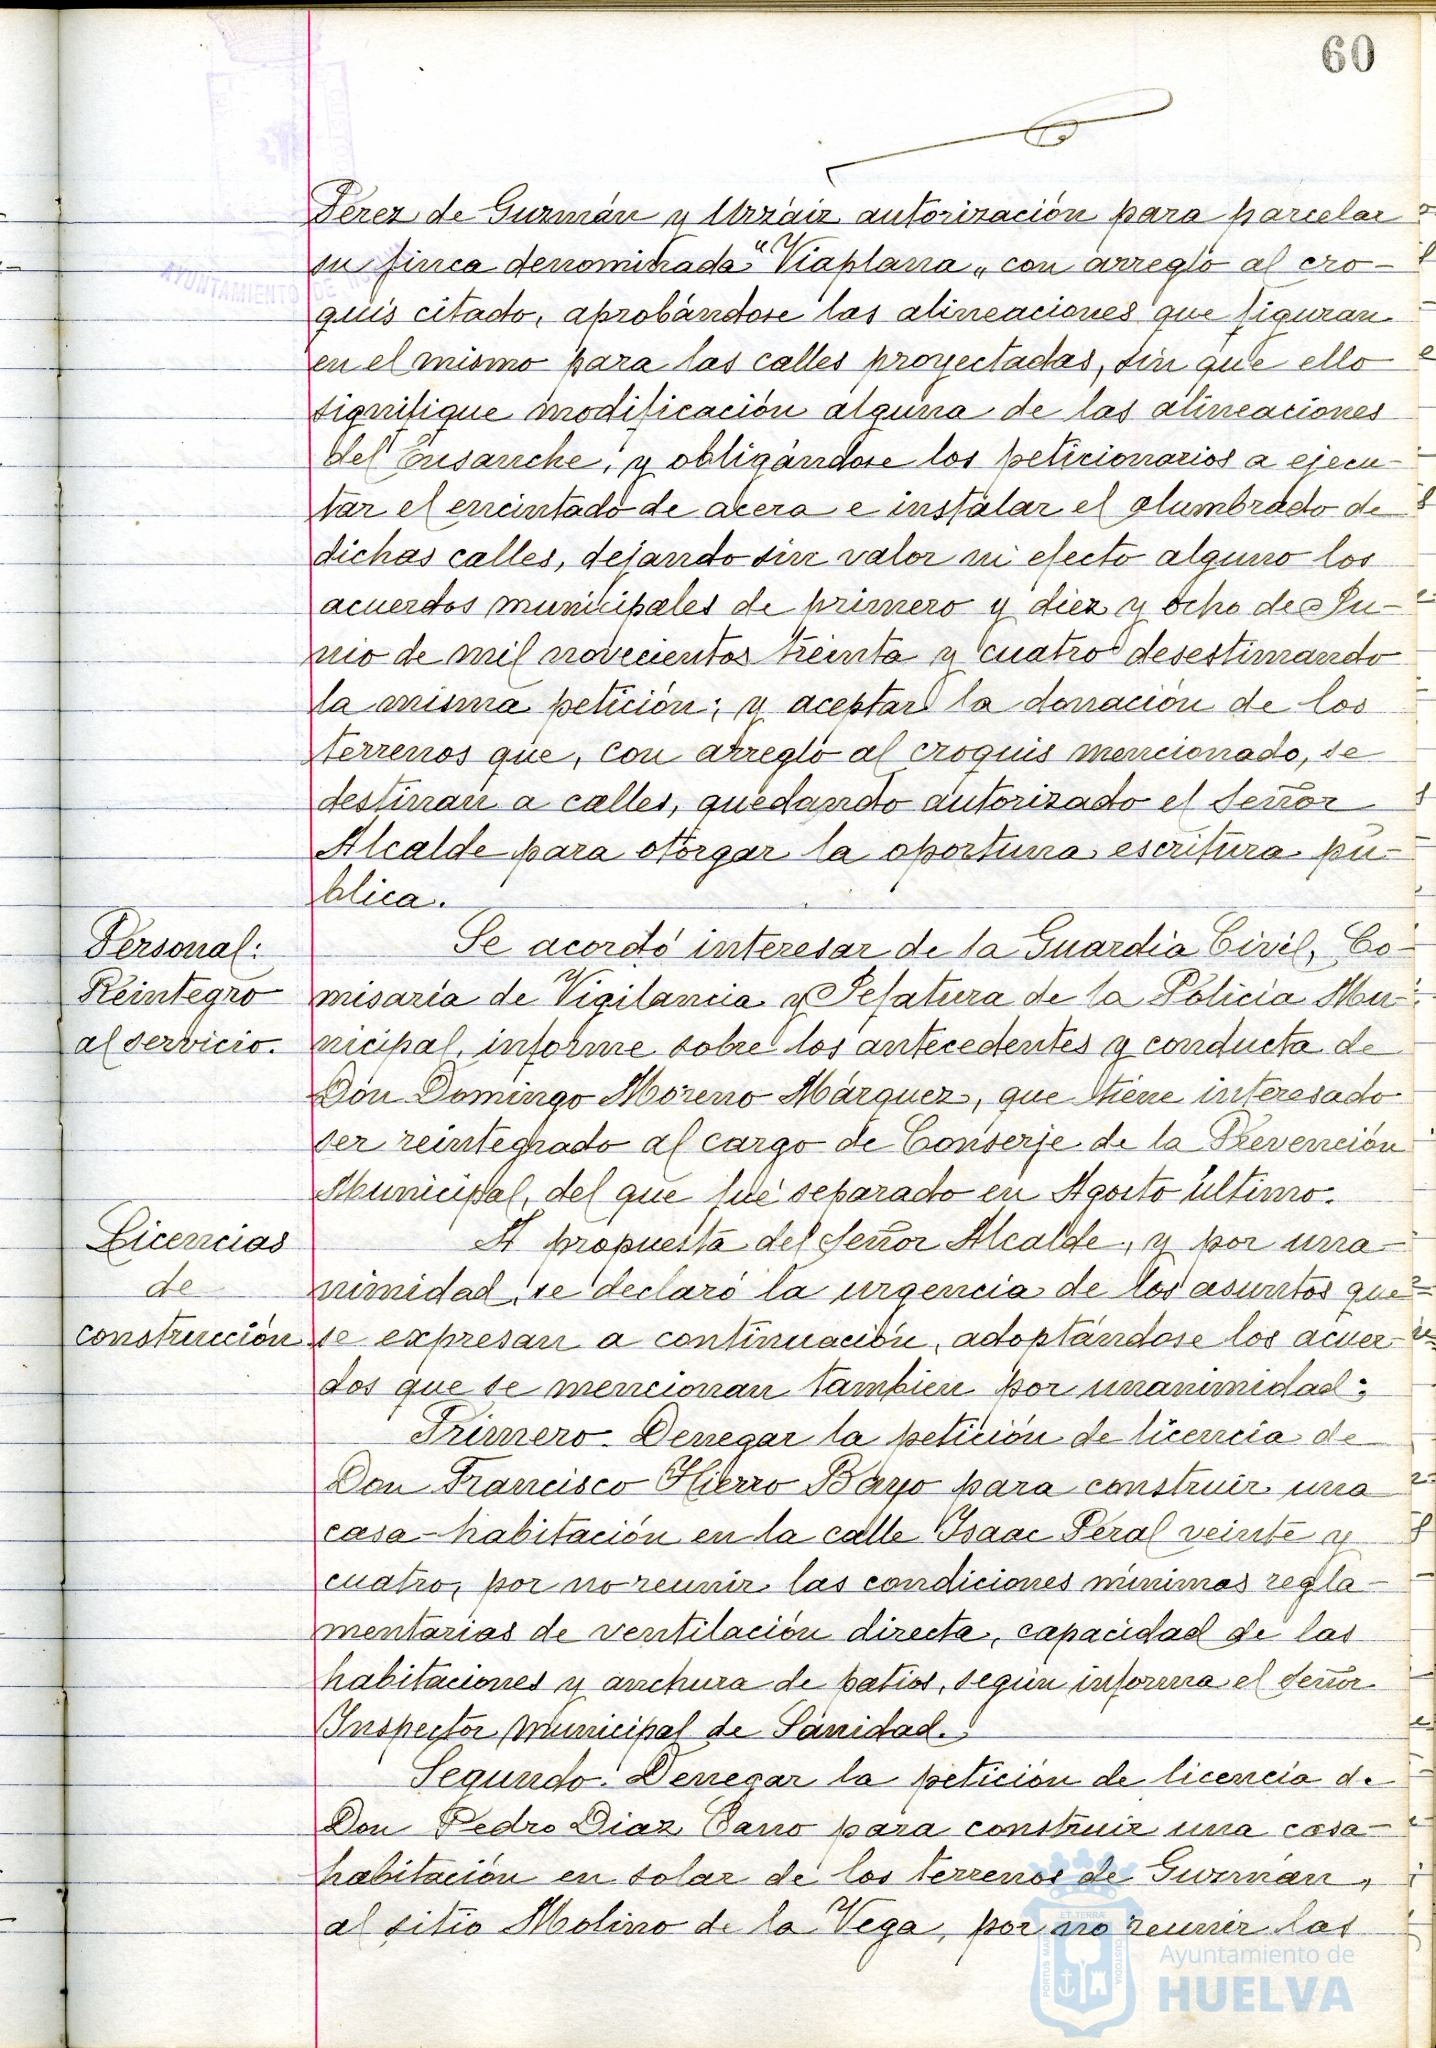 60
Pérez de Guzmán y Urzáiz autorización para parcelar
su finca denominada "Viaplana" con arreglo al cro-
quis citado, aprobándose las alineaciones que figuran
en el mismo para las calles proyectadas, sin que ello
signifique modificación alguna de las alineaciones
del Ensanche, y obligándose los peticionarios a ejecu-
tar el encintado de acera e instalar el alumbrado de
dichas calles, dejando sin valor ni efecto alguno los
acuerdos municipales de primero y diez y ocho de Ju-
nio de mil novecientos treinta y cuatro desestimando
la misma petición; y aceptar la donación de los
terrenos que, con arreglo al croquis mencionado, se
destinan a calles, quedando autorizado el Señor
Alcalde para otorgar la oportuna escritura pú-
blica.
Personal:
Reintegro
al servicio.
Se acordó interesar de la Guardia Civil, Co-
misaría de Vigilancia y Jefatura de la Policía Mu-
nicipal, informe sobre los antecedentes y conducta de
Don Domingo Moreno Márquez, que tiene interesado
ser reintegrado al cargo de Conserje de la Prevención
Municipal, del que fué separado en Agosto último.
Licencias
de
construcción
A propuesta del Señor Alcalde, y por una-
nimidad, se declaró la urgencia de los asuntos que
se expresan a continuación, adoptándose los acuer-
dos que se mencionan tambien por unanimidad:
Primero. Denegar la petición de licencia de
Don Francisco Hierro Bayo para construir una
casa-habitación en la calle Isaac Peral veinte y
cuatro, por no reunir las condiciones mínimas regla-
mentarias de ventilación directa, capacidad de las
habitaciones y anchura de patios, según informa el Señor
Inspector Municipal de Sanidad.
Segundo. Denegar la petición de licencia de
Don Pedro Diaz Cano para construir una casa-
habitación en solar de los terrenos de Guzmán,
al sitio Molino de la Vega, por no reunir las
AYUNTAMIENTO DE
PORTUS MARIS ET TERRÆ CUSTODIA
Ayuntamiento de
HUELVA